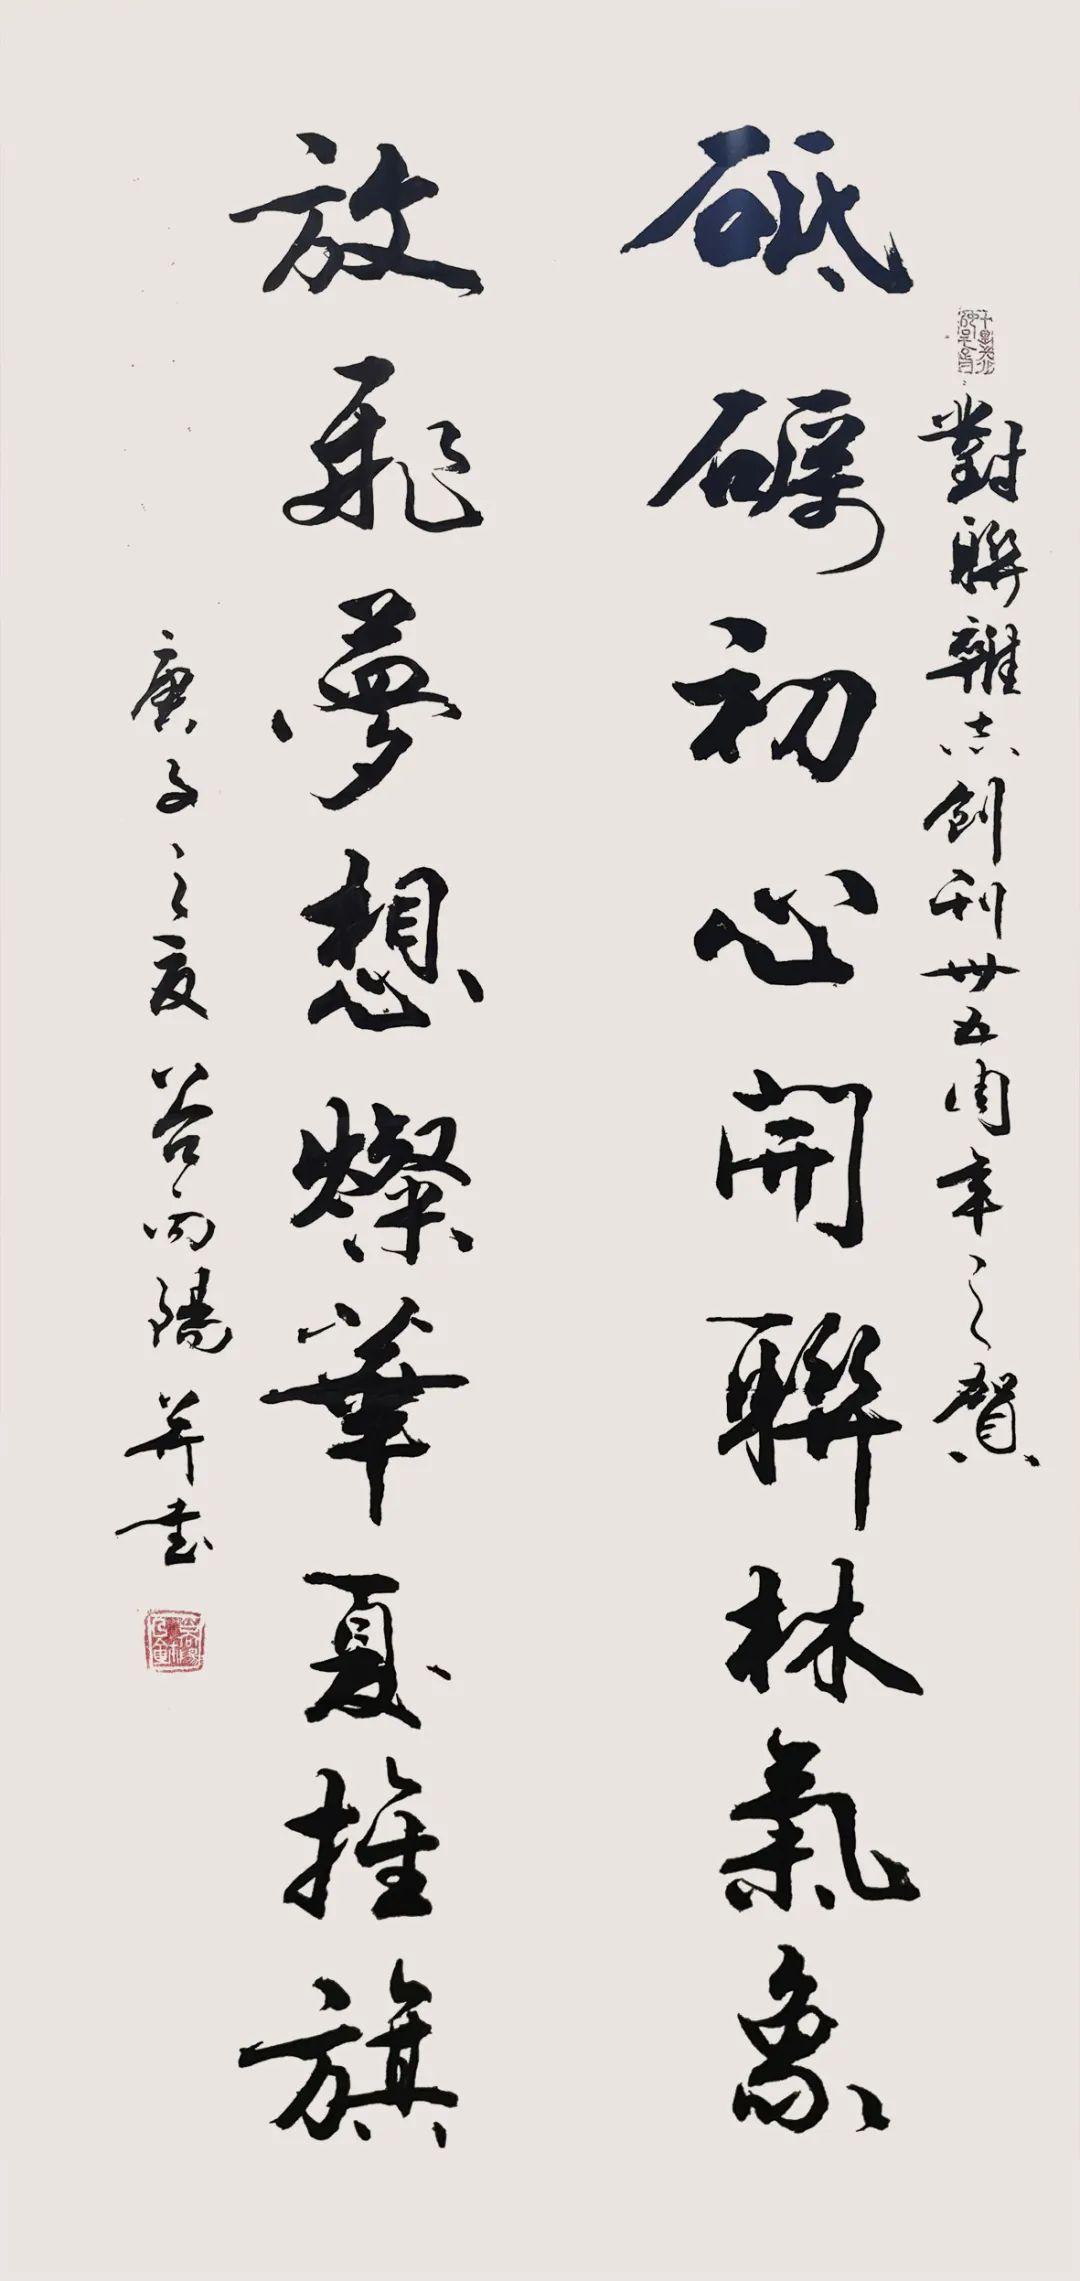 對聯雜志創刊卅五周年之賀
砥礪初心開聯林氣象
放飛夢想燦華夏推旗
庚子之夏 谷向陽并書